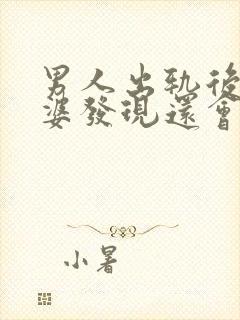 男人出軌後
婆發現還會
小暑